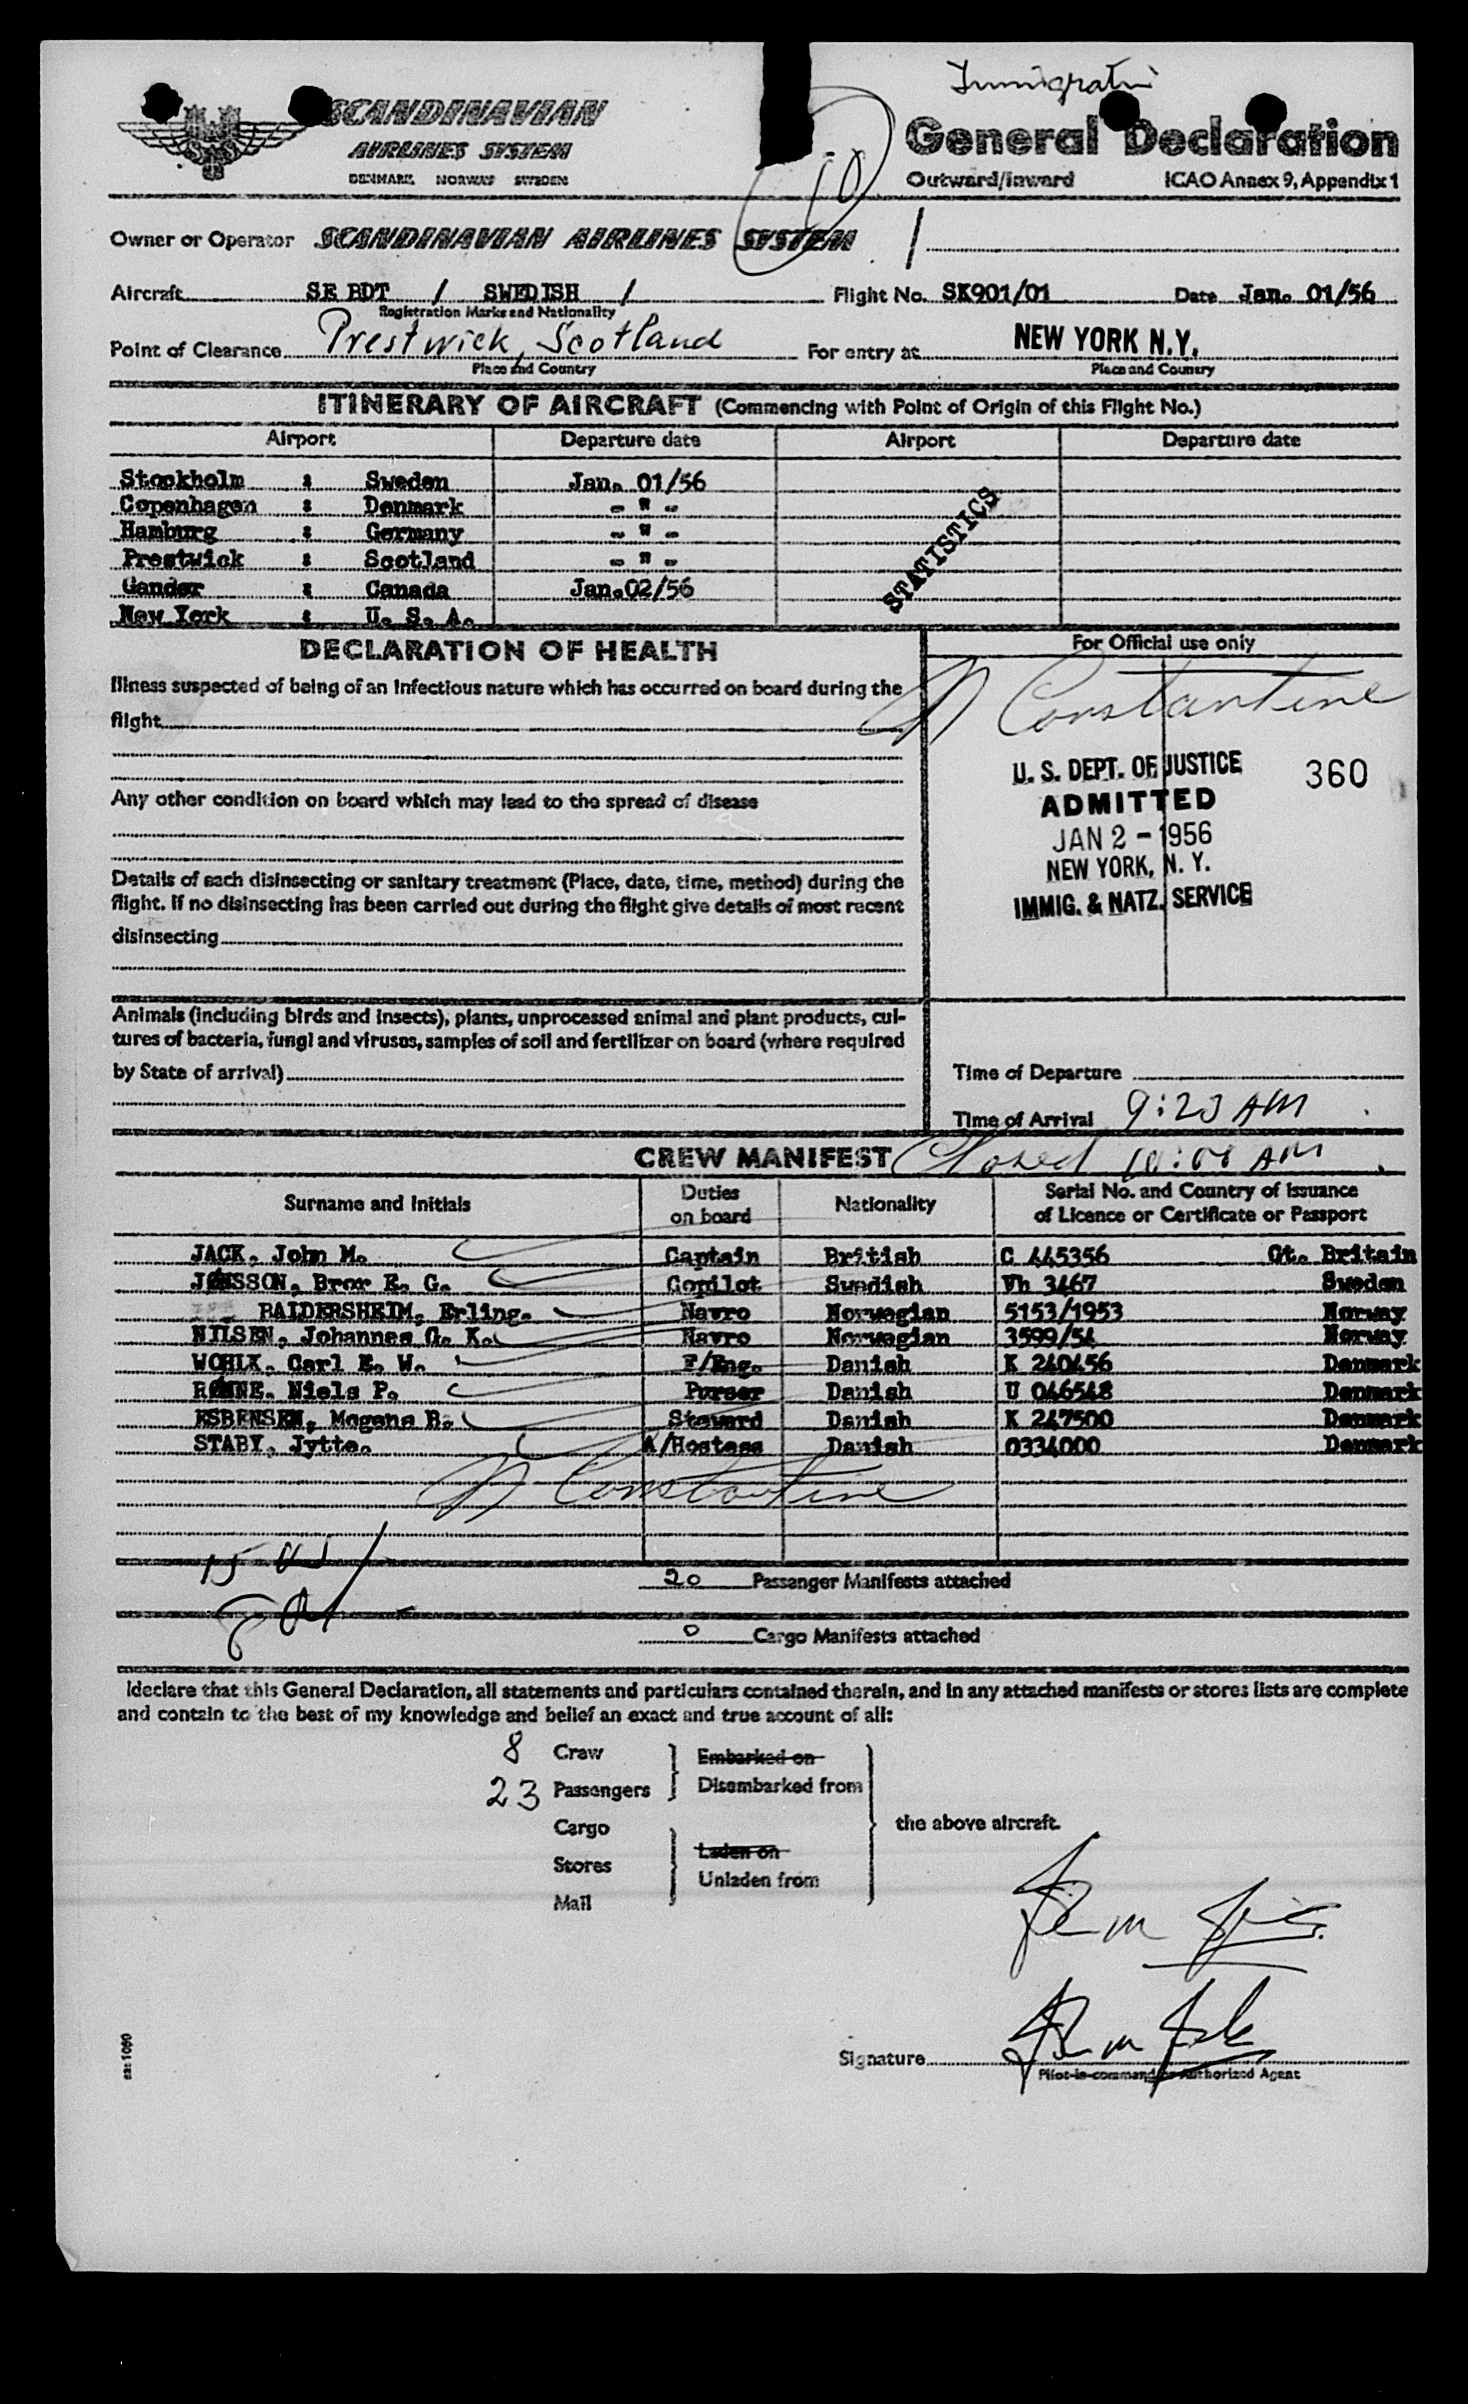 Immigration
SCANDINAVIAN
AIRLINES SYSTEM
DENMARK NORWAY SWEDEN
SAS
10
General Declaration
Outward/Inward ICAO Annex 9, Appendix 1
Owner or Operator SCANDINAVIAN AIRLINES SYSTEM /
Aircraft SE BDT / SWEDISH / Flight No. SK901/01 Date Jan. 01/56
Registration Marks and Nationality
Point of Clearance Prestwick, Scotland For entry at NEW YORK N.Y.
Place and Country Place and Country
ITINERARY OF AIRCRAFT (Commencing with Point of Origin of this Flight No.)
Airport Departure date Airport Departure date
Stockholm : Sweden Jan. 01/56
Copenhagen : Denmark - " -
Hamburg : Germany - " -
Prestwick : Scotland - " -
Gander : Canada Jan.02/56
New York : U. S. A.
STATISTICS
DECLARATION OF HEALTH
Illness suspected of being of an infectious nature which has occurred on board during the
flight
Any other condition on board which may lead to the spread of disease
Details of each disinsecting or sanitary treatment (Place, date, time, method) during the
flight. If no disinsecting has been carried out during the flight give details of most recent
disinsecting
Animals (including birds and insects), plants, unprocessed animal and plant products, cul-
tures of bacteria, fungi and viruses, samples of soil and fertilizer on board (where required
by State of arrival)
For Official use only
N Constantine
U. S. DEPT. OF JUSTICE 360
ADMITTED
JAN 2 - 1956
NEW YORK, N. Y.
IMMIG. & NATZ. SERVICE
Time of Departure
Time of Arrival 9:23 AM
CREW MANIFEST Closed AM
Surname and Initials Duties on board Nationality Serial No. and Country of Issuance of Licence or Certificate or Passport
JACK, John M. Captain British C 445356 Gt. Britain
JØNSSON, Bror E. G. Copilot Swedish Vh 3467 Sweden
BAIDERSHEIM, Erling. Navro Norwegian 5153/1953 Norway
NILSEN, Johannes O. K. Navro Norwegian 3599/54 Norway
WOHLK, Carl E. W. F/Eng. Danish K 240456 Denmark
RØNNE, Niels P. Purser Danish U 046548 Denmark
ESBENSEN, Mogens B. Steward Danish K 247500 Denmark
STABY, Jytte. A/Hostess Danish 0334000 Denmark
N Constantine
15
8
20 Passenger Manifests attached
0 Cargo Manifests attached
I declare that this General Declaration, all statements and particulars contained therein, and in any attached manifests or stores lists are complete
and contain to the best of my knowledge and belief an exact and true account of all:
8 Crew Embarked on
23 Passengers Disembarked from
Cargo
the above aircraft.
Stores Laden on
Unladen from
Mail
Signature
Pilot-in-command or Authorized Agent